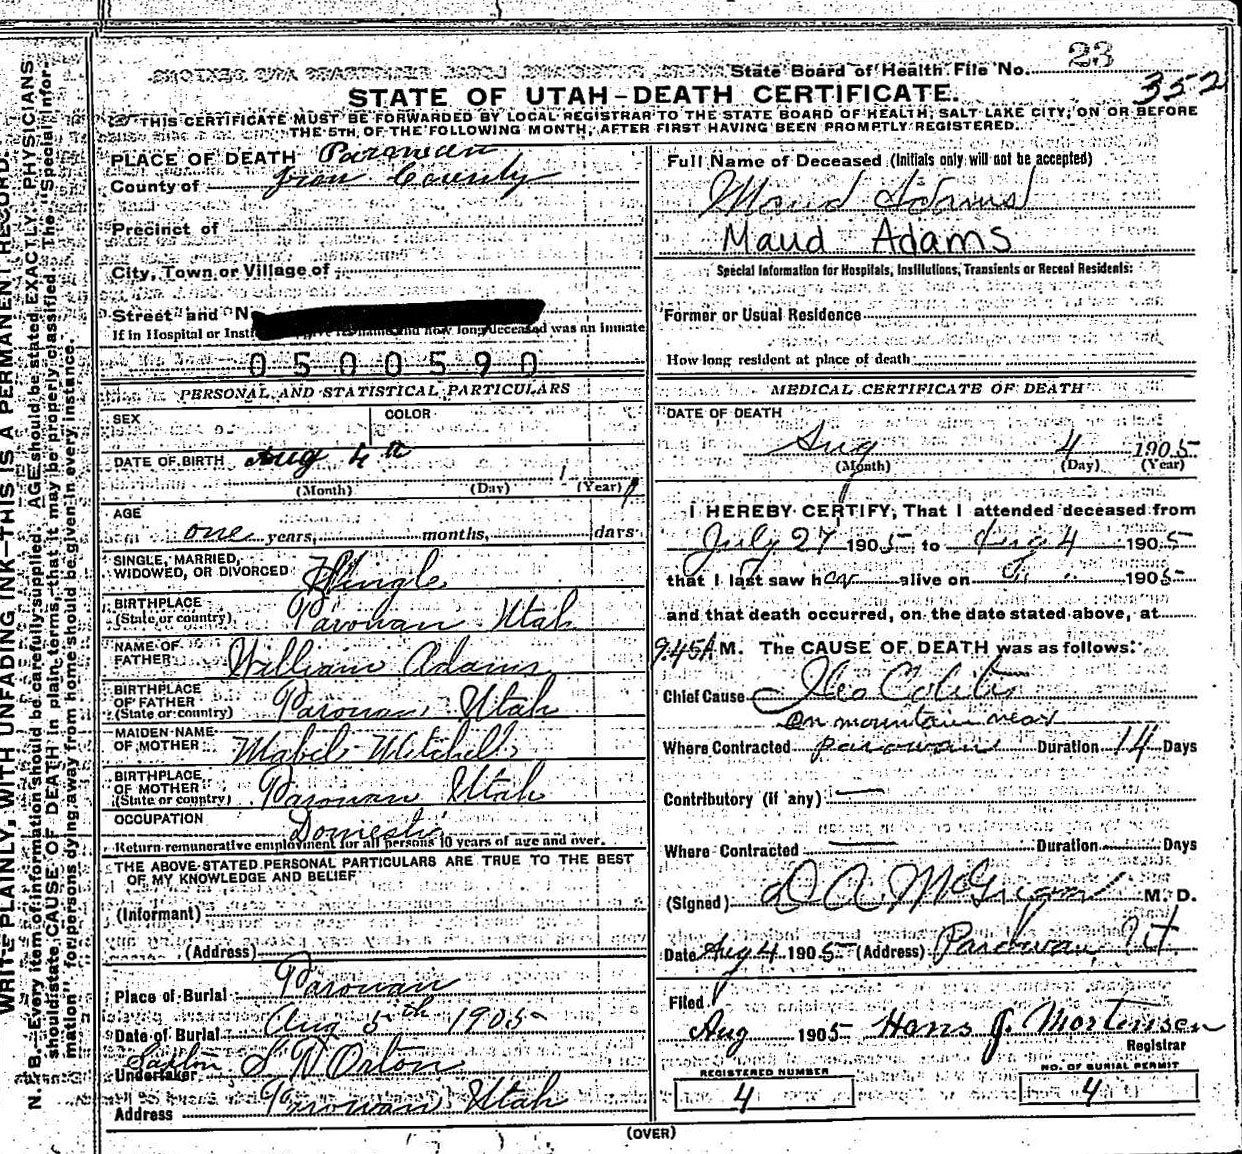 State Board of Health File No. 23
352
STATE OF UTAH-DEATH CERTIFICATE.
THIS CERTIFICATE MUST BE FORWARDED BY LOCAL REGISTRAR TO THE STATE BOARD OF HEALTH, SALT LAKE CITY, ON OR BEFORE
THE 5TH OF THE FOLLOWING MONTH, AFTER FIRST HAVING BEEN PROMPTLY REGISTERED.
WRITE PLAINLY, WITH UNFADING INK—THIS IS A PERMANENT RECORD.
N. B.—Every item of information should be carefully supplied. AGE should be stated EXACTLY. PHYSICIANS
should state CAUSE OF DEATH in plain terms, that it may be properly classified. The "Special Infor-
mation" for persons dying away from home should be given in every instance.
PLACE OF DEATH Parowan
County of Iron County
Precinct of
City, Town or Village of
Street and N
If in Hospital or Insti how long deceased was an inmate
0500590
PERSONAL AND STATISTICAL PARTICULARS
SEX
COLOR
DATE OF BIRTH Aug 4th
1
(Month) (Day) (Year)
AGE
one years, months, days
SINGLE, MARRIED,
WIDOWED, OR DIVORCED Single
BIRTHPLACE
(State or country) Parowan Utah
NAME OF
FATHER William Adams
BIRTHPLACE
OF FATHER
(State or country) Parowan, Utah
MAIDEN NAME
OF MOTHER Mabel Mitchell
BIRTHPLACE
OF MOTHER
(State or country) Parowan, Utah
OCCUPATION Domestic
Return remunerative employment for all persons 10 years of age and over.
THE ABOVE STATED PERSONAL PARTICULARS ARE TRUE TO THE BEST
OF MY KNOWLEDGE AND BELIEF
(Informant)
(Address)
Place of Burial Parowan
Date of Burial Aug 5th 1905
Undertaker Sexton S D Orton
Address Parowan Utah
Full Name of Deceased (Initials only will not be accepted)
Maud Adams
Maud Adams
Special Information for Hospitals, Institutions, Transients or Recent Residents:
Former or Usual Residence
How long resident at place of death
MEDICAL CERTIFICATE OF DEATH
DATE OF DEATH
Aug 4 1905
(Month) (Day) (Year)
I HEREBY CERTIFY, That I attended deceased from
July 27 1905 to Aug 4 1905
that I last saw her alive on 1905
and that death occurred, on the date stated above, at
9.45 A M. The CAUSE OF DEATH was as follows:
Chief Cause Ileo Colitis
on mountain near
Where Contracted parowan Duration 14 Days
Contributory (if any) —
Where Contracted — Duration Days
(Signed) M. D.
Date Aug 4 1905 (Address) Parowan, Ut
Filed
Aug 1905 Hans J. Mortensen
Registrar
REGISTERED NUMBER
4
NO. OF BURIAL PERMIT
4
(OVER)